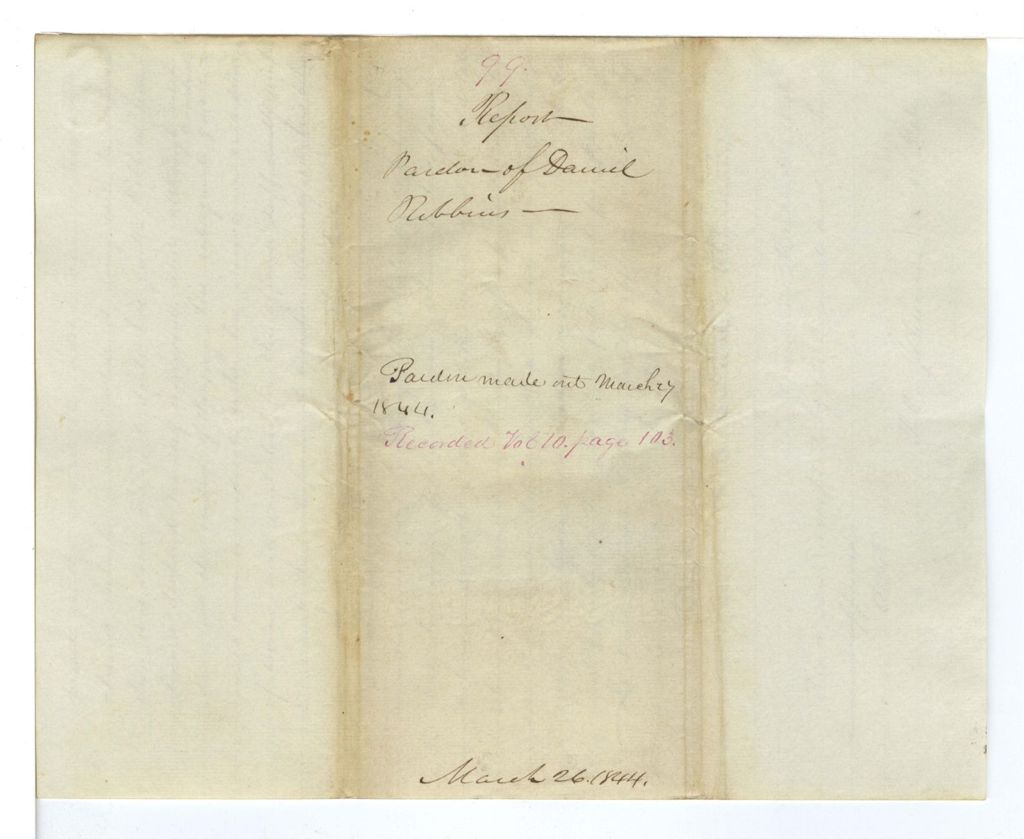 99.
Report
Pardon of Daniel
Robbins
Pardon made out March 27
1844.
Recorded Vol 10. page 103.
March 26. 1844.